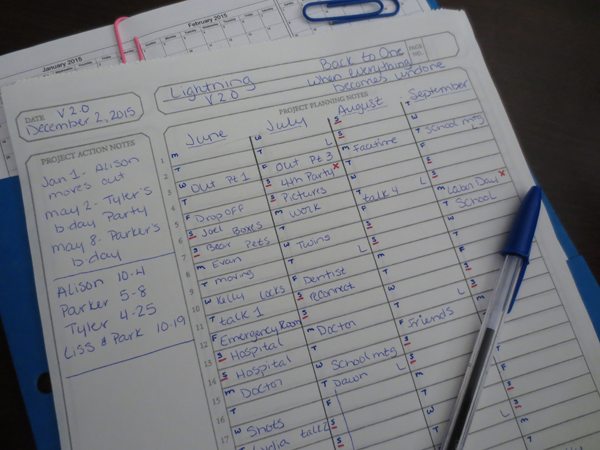 January 2015
February 2015
DATE V 2.0
December 2, 2015
Lightning
V 2.0
Back to One
When everything
becomes undone
PAGE NO.
PROJECT ACTION NOTES
Jan 1 - Alison
moves out
may 2 - Tyler's
b-day Party
may 8 - Parker's
b-day
Alison 10-4
Parker 5-8
Tyler 4-25
Liss & Park 10-19
PROJECT PLANNING NOTES
June
1 M
2 T
3 W Out Pt 1
4 T
5 F Drop off
6 S Joel Boxes
7 S Bear Pets
8 M Evan
9 T moving
10 W Kelly Locks
11 T talk 1
12 F Emergency Room
13 S Hospital
14 S Hospital
15 M Doctor
16 T
17 W Shots
talk 2
July
W
T L
F Out Pt 3
S 4th Party x
S Pictures
M work
T
W Twins
T L
F Dentist
S reconnect
S
M Doctor
T
W School mtg
T Dawn L
F
S
S
August
S
S
M Facetime
T
W
T talk 4 L
F
S
S
M
T
W
T L
F Friends
S
S
M
T
W
T L
September
T
W School mtg
T L
F
S
S
M Labor Day x
T School
W
T L
F
S
S
M
T
W
T L
F
S